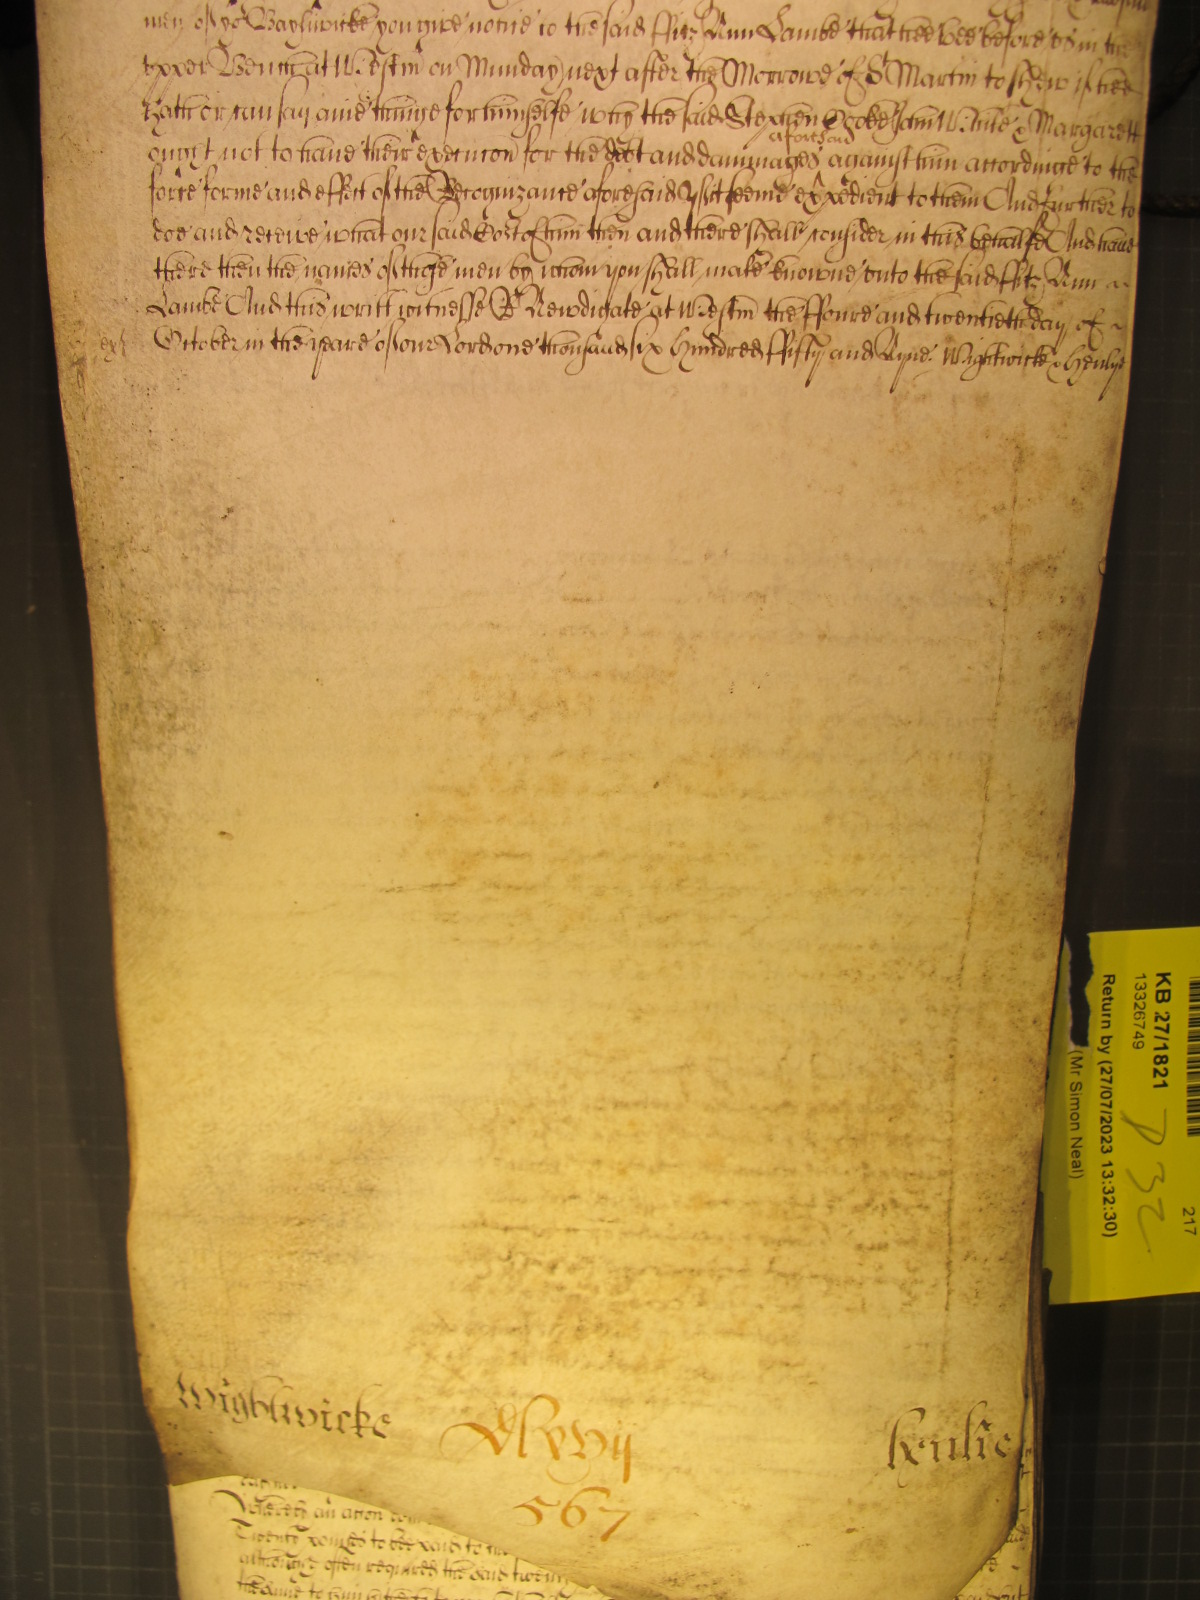 men of yor Baylywicke you give notice to the said ffitz Ann Lambe that hee bee before us in the
upper Bench at Westm on Munday next after the Morrowe of St Martin to shew if hee
hath or can say anie thinge for himselfe why the said Stephen Cooke Sam White & Margarett
ought not to have their execucon for the debt and dammages aforesaid against him accordinge to the
force forme and effect of the Recognizance aforesaid yf it seeme expedient to them And further to
doe and receive what our said Cort of him then and there shall consider in this behalfe And have
there then the names of those men by whom you shall make knowne unto the said ffitz Ann
Lambe And this writt witnesse R Newdigate at Westm the ffoure and twentieth day of
October in the yeare of our Lord one thousand six hundred ffifty and Nyne. Wightwicke & Henlye
Wightwicke
Dlxvij
henlie
567
an action
Twenty pounds to bee paid to
although often required the said twenty
the same to him
KB 27/1821
13326749
Return by (27/07/2023 13:32:30)
(Mr Simon Neal)
217
P 32